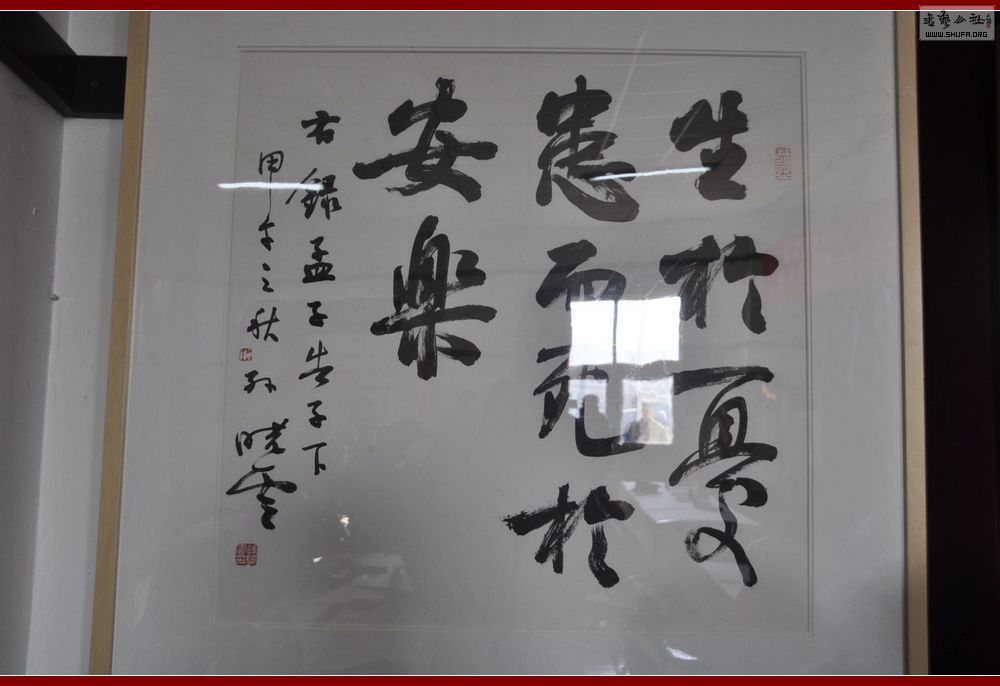 生於憂
患而死於
安樂
右錄孟子告子下
甲午之秋 孫曉雲
書藝公社
WWW.SHUFA.ORG